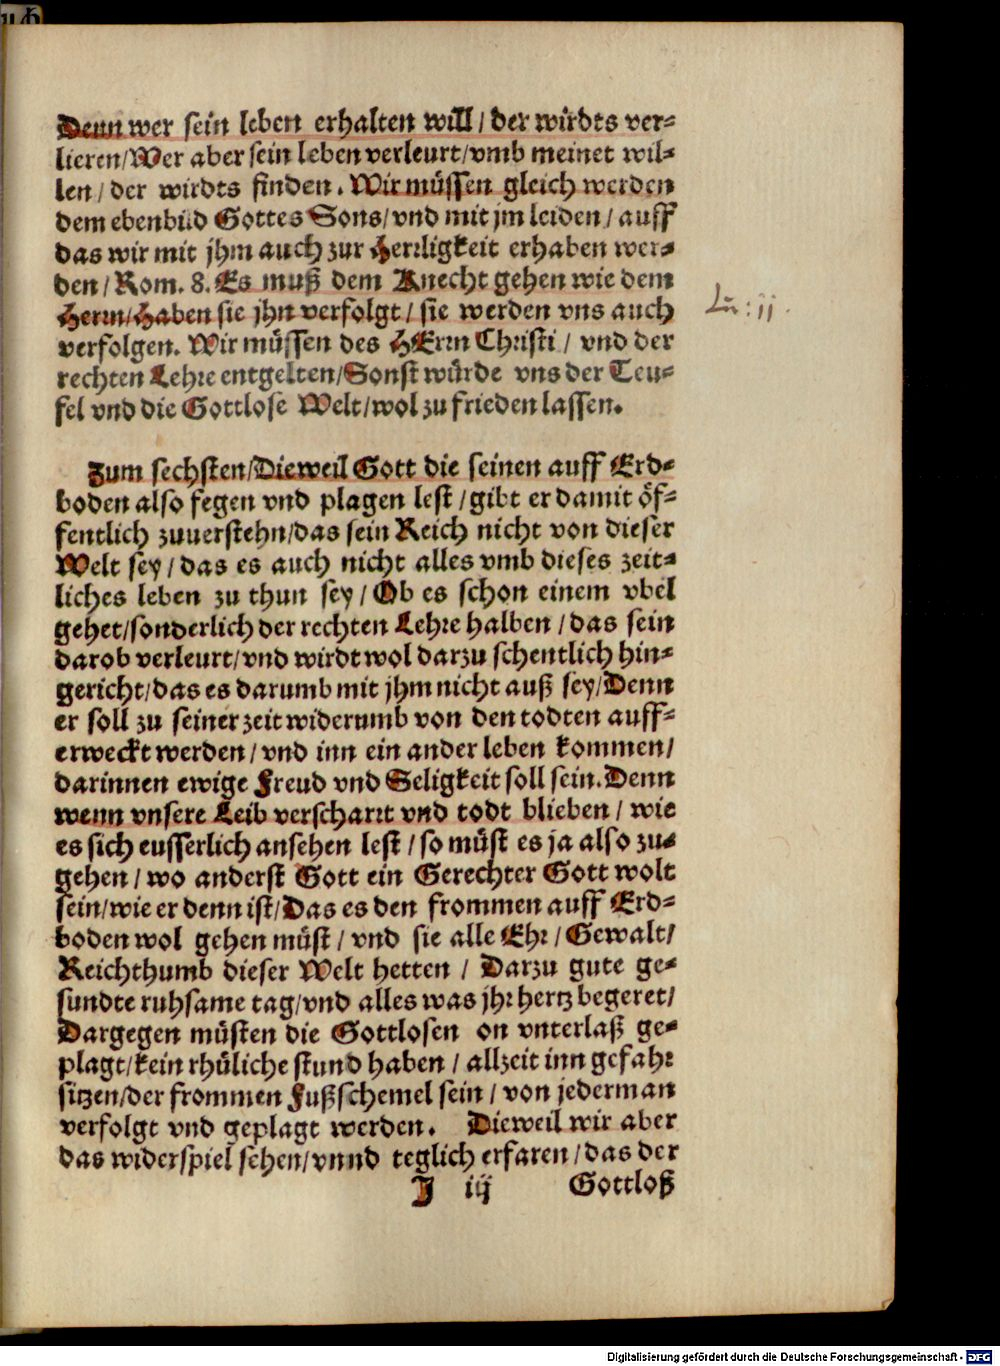 Denn wer sein leben erhalten will / der wirdts ver-
lieren/Wer aber sein leben verleurt/vmb meinet wil-
len / der wirdts finden. Wir müssen gleich werden
dem ebenbild Gottes Sons/vnd mit jm leiden / auff
das wir mit jhm auch zur Herrligkeit erhaben wer-
den / Rom. 8. Es muß dem Knecht gehen wie dem
Herrn/Haben sie jhn verfolgt / sie werden vns auch
verfolgen. Wir müssen des HErrn Christi / vnd der
rechten Lehre entgelten/Sonst würde vns der Teu-
fel vnd die Gottlose Welt/wol zu frieden lassen.
Zum sechsten/Dieweil Gott die seinen auff Erd-
boden also fegen vnd plagen lest / gibt er damit öf-
fentlich zuuerstehn/das sein Reich nicht von dieser
Welt sey / das es auch nicht alles vmb dieses zeit-
liches leben zu thun sey / Ob es schon einem vbel
gehet/sonderlich der rechten Lehre halben / das sein
darob verleurt/vnd wirdt wol darzu schentlich hin-
gericht/das es darumb mit jhm nicht auß sey/Denn
er soll zu seiner zeit widerumb von den todten auff-
erweckt werden / vnd inn ein ander leben kommen/
darinnen ewige Freud vnd Seligkeit soll sein. Denn
wenn vnsere Leib verscharrt vnd todt blieben / wie
es sich eusserlich ansehen lest / so müst es ja also zu-
gehen / wo anderst Gott ein Gerechter Gott wolt
sein/wie er denn ist/Das es den frommen auff Erd-
boden wol gehen müst / vnd sie alle Ehr / Gewalt/
Reichthumb dieser Welt hetten / Darzu gute ge-
sundte ruhsame tag/vnd alles was jhr hertz begeret/
Dargegen müsten die Gottlosen on vnterlaß ge-
plagt/kein rhüliche stund haben / allzeit inn gefahr
sitzen/der frommen Fußschemel sein / von jederman
verfolgt vnd geplagt werden. Dieweil wir aber
das widerspiel sehen/vnnd teglich erfaren / das der
J iij Gottloß
Digitalisierung gefördert durch die Deutsche Forschungsgemeinschaft - DFG